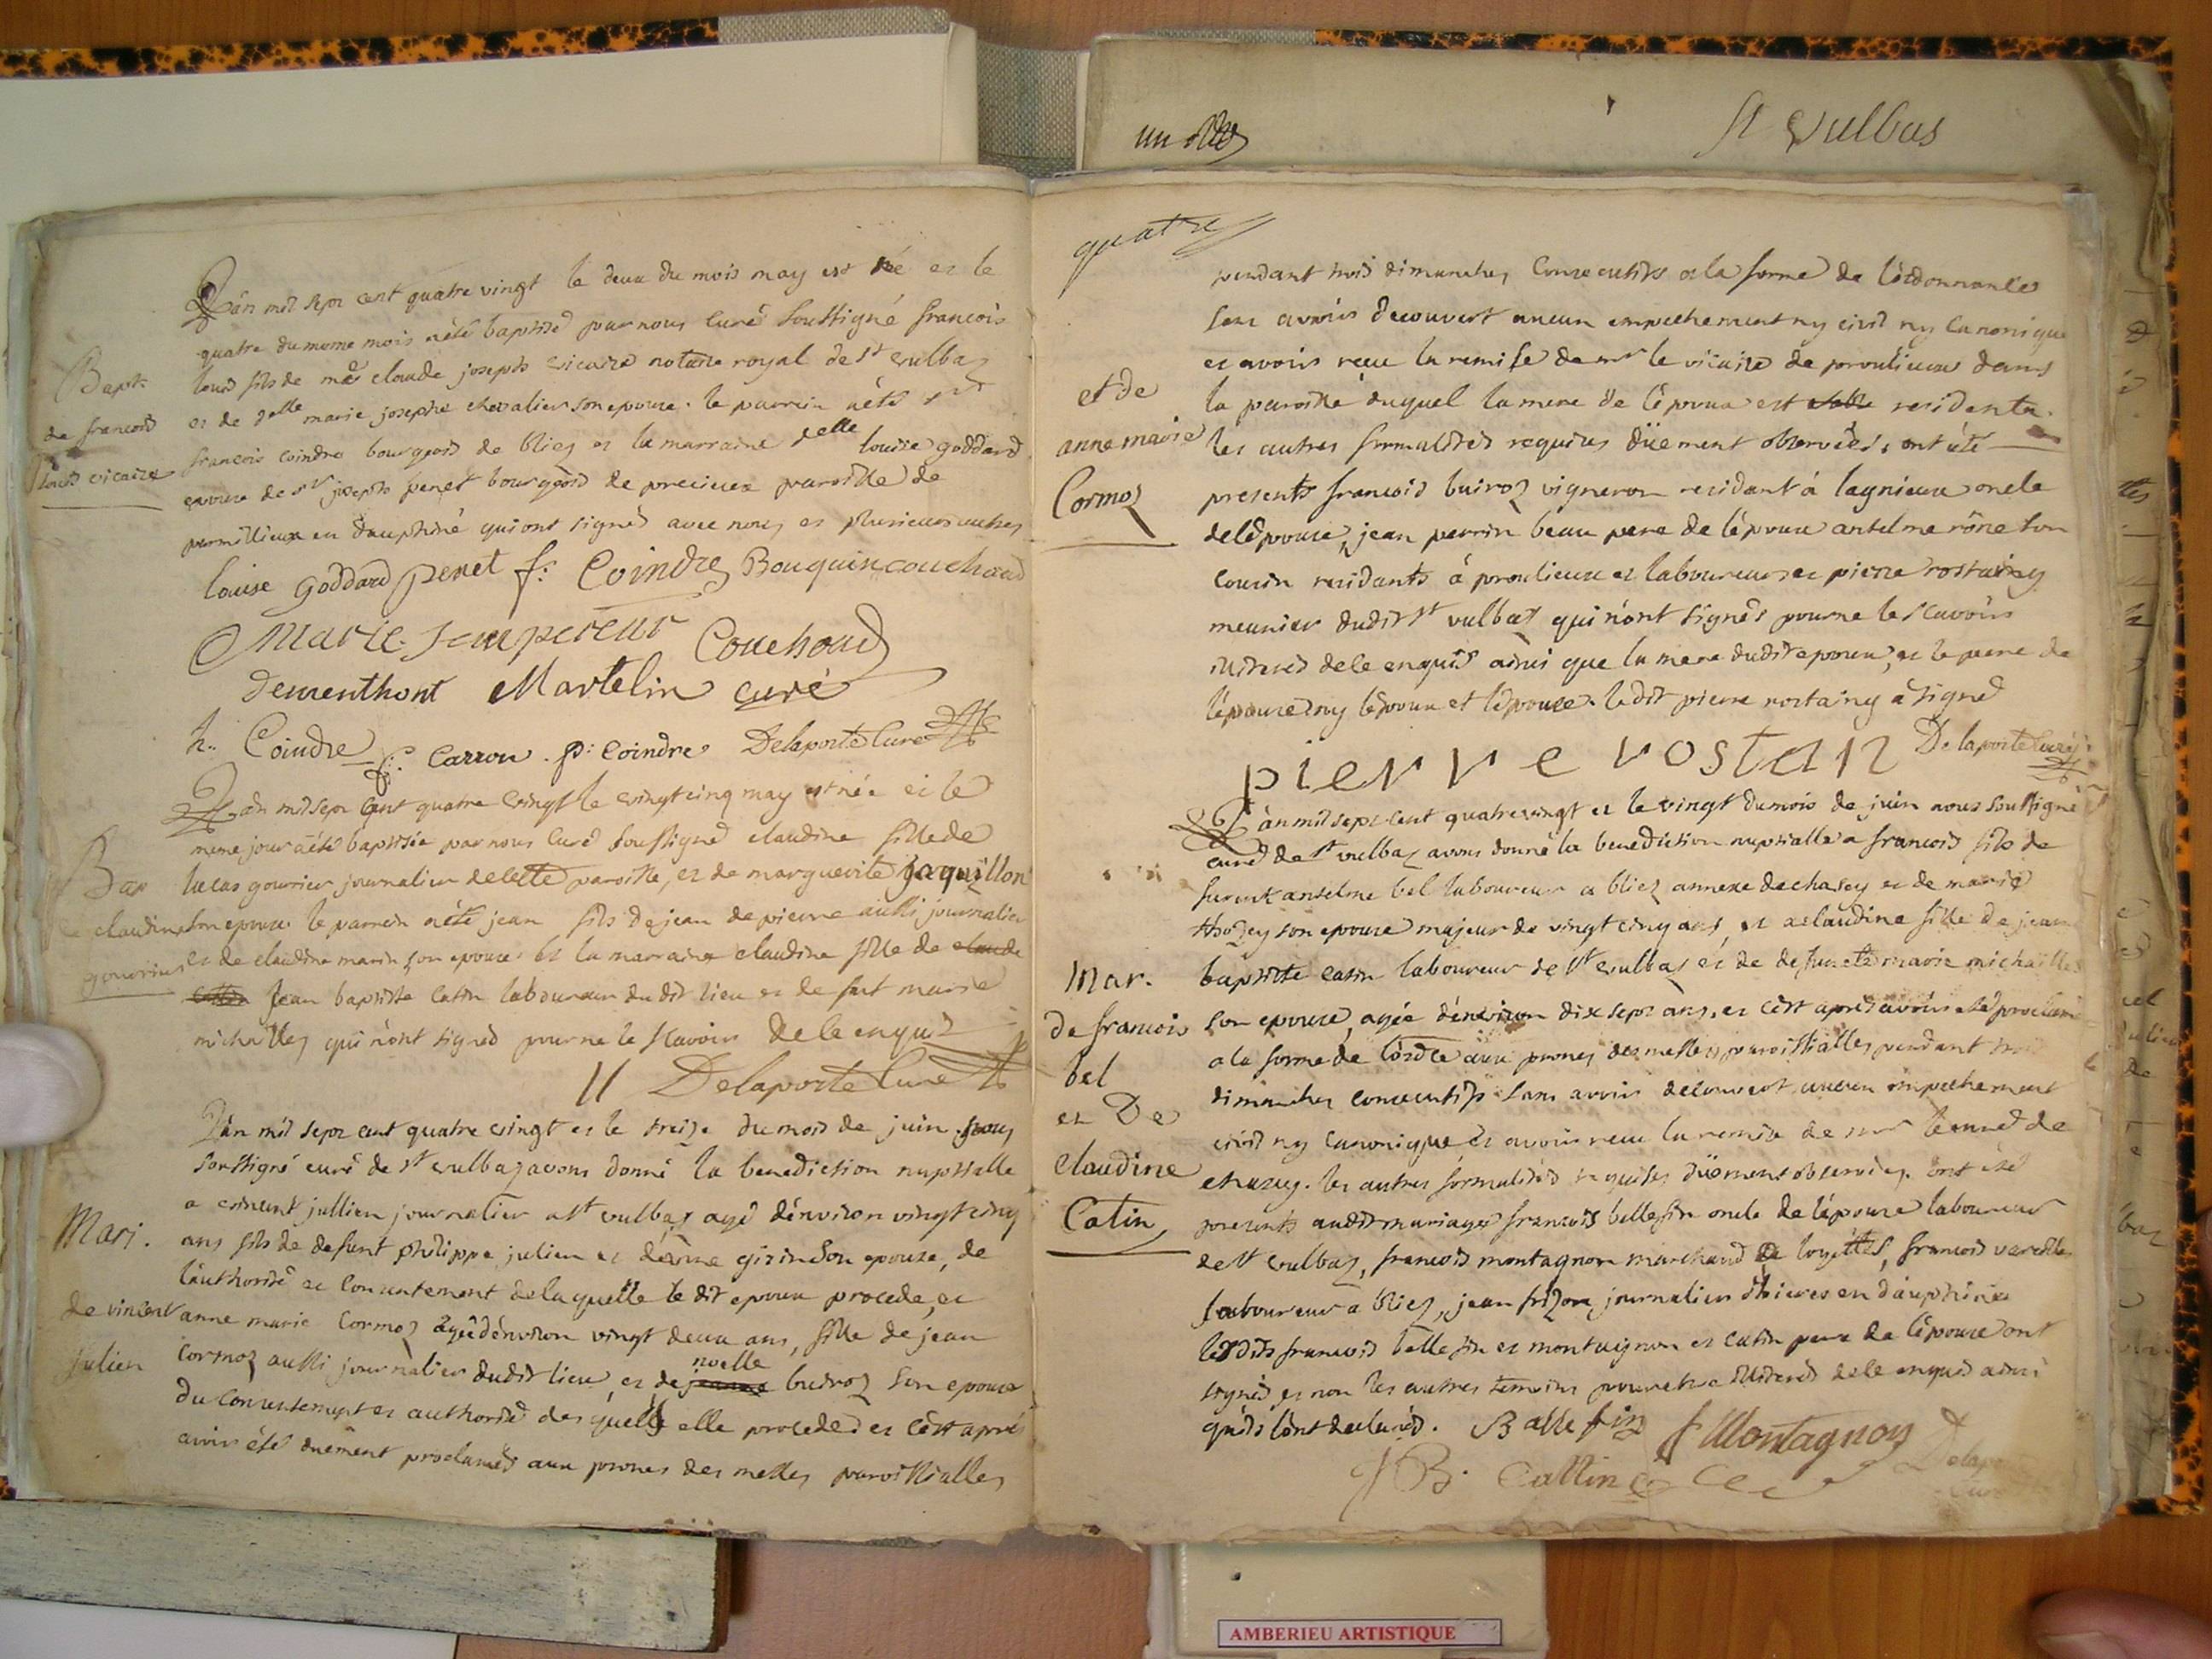 St Vulbas
Bapt.
de francois
louis vicaire
L'an mil sept cent quatre vingt le deux du mois may est né et le
quatre du meme mois a été baptisé par nous curé soussigné francois
louis fils de me claude joseph vicaire notaire royal de st vulbas
et de delle marie josephe chevalier son epouse. le parrein a été sr
francois coindre bourgeois de blies et la marraine delle louise goddard
epouse de sr joseph penet bourgeois de precieux paroisse de
parmillieux en dauphiné qui ont signés avec nous et plusieurs autres
louise goddard penet f: Coindre Bouquin couchoud
Marie Lempereur Couchoud
dementhont Martelin curé
h.. Coindre f: Carron . p: Coindre Delaporte Curé
Bap
de claudine
gourier
L'an mil sept cent quatre vingt le vingt cinq may est née et le
meme jour a été baptisée par nous curé soussigné claudine fille de
lucas gourier journalier de cette paroisse, et de marguerite Jaquillon
son epouse. le parrein a été jean fils de jean de pierre aussi journalier
et de claudine marin son epouse et la marraine claudine fille de claude
catin Jean baptiste catin laboureur du dit lieu et de fut marie
michalles qui n'ont signés pour ne le scavoir de le enquis
Delaporte Curé
Mari.
de vincent
julien
L'an mil sept cent quatre vingt et le treize du mois de juin nous
soussigné curé de st vulbas avons donné la benediction nuptialle
a vincent jullien journalier a st vulbas agé d'environ vingt cinq
ans fils de defunt philippe julien et d'anne girin son epouse, de
l'authorité et consentement de laquelle le dit epoux procede, et
anne marie Cormoz agée d'environ vingt deux ans, fille de jean
Cormoz aussi journalier dudit lieu, et de jeanne noelle buiroz son epouse
du consentement et authorité des quels elle procede et c'est aprés
avoir été duement proclamés aux prones des messes paroissialles
quatre
et de
anne marie
Cormoz
pendant trois dimanches consecutifs a la forme de l'ordonnance
sans avoir decouvert aucun empechement ny civil ny canonique
et avoir reçu la remise de mr le vicaire de proulieux dans
la paroisse duquel la mere de l'époux est residente.
les autres formalités requises düement observées, ont été
presents francois buiroz vigneron residant á lagnieux oncle
de l'épouse, jean perrin beau pere de l'époux antelme rône son
cousin residants á proulieux et laboureurs et pierre rostaing
meunier dudit st vulbas qui n'ont signés pour ne le scavoir
illiterés de le enquis ainsi que la mere dudit epoux, et le pere de
l'épouse ny l'époux et l'épouse. le dit pierre rostaing a signé
pierre rostan Delaporte Curé
Mar.
de francois
bel
et De
claudine
Catin
L'an mil sept cent quatre vingt et le vingt du mois de juin nous soussigné
curé de st vulbas avons donné la benediction nuptialle a francois fils de
furent antelme bel laboureur a blies annexe de chasey et de marie
thozey son epouse majeur de vingt cinq ans, et a claudine fille de jean
baptiste catin laboureur de st vulbas et de defuncte marie michalles
son epouse, agée d'environ dix sept ans, et c'est aprés avoir été proclamés
a la forme de l'ordce aux prones des messes paroissialles pendant trois
dimanches consecutifs sans avoir decouvert aucun empechement
civil ny canonique et avoir reçu la remise de mr le curé de
chazey. les autres formalités requises düement observées. ont été
presents audit mariage francois bellefin oncle de l'épouse laboureur
de st vulbas, francois montagnon marchand de loyettes, francois
laboureur a blies, jean frizon, journalier d'hieres en dauphiné
lesdits francois bellefin et montagnon et catin pere de l'épouse ont
signés et non les autres temoins pour etre illiterés de le enquis ainsi
qu'ils l'ont declarés. Bellefin f Montagnon
J B. Cattin Delaporte
Curé
AMBERIEU ARTISTIQUE